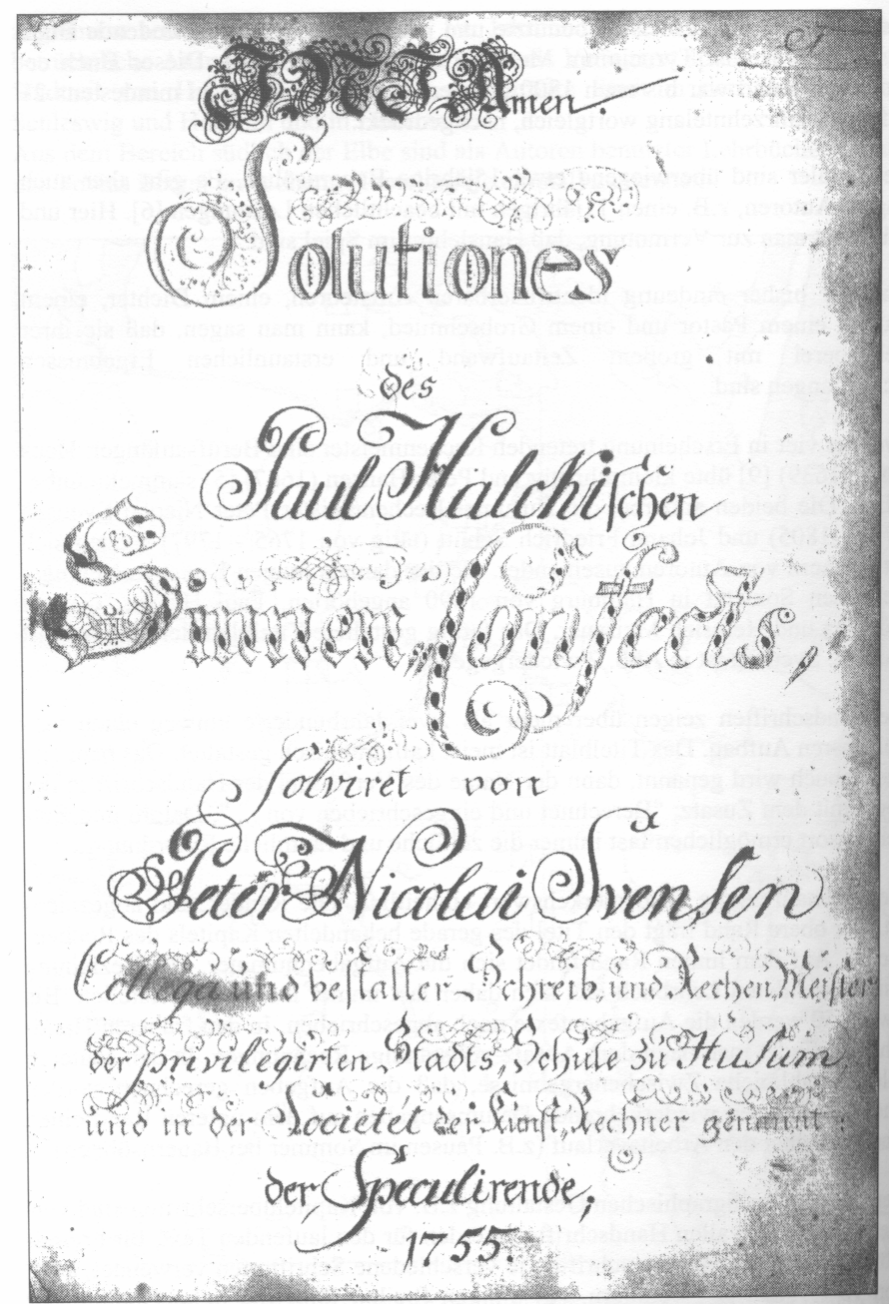 JESU Amen.
Solutiones
des
Paul Halckischen
Sinnen-Confects,
solviret von
Peter Nicolai Svensen
Collega und bestalter Schreib und Rechen Meister
der privilegirten Stadts, Schule zu Husum,
und in der Societet der Kunst, Rechner genannt:
der Speculirende,
1755